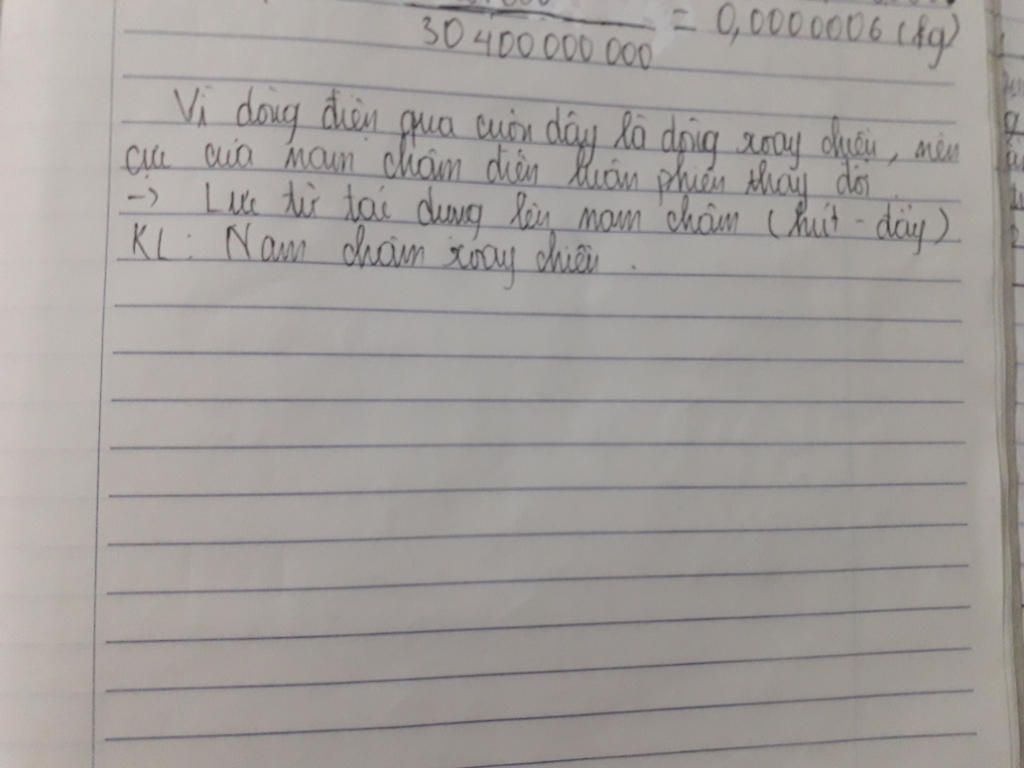 30 400 000 000 = 0,0000006 (kg)
Vì dòng điện qua cuộn dây là dòng xoay chiều, nên
cực của nam châm điện luân phiên thay đổi.
-> Lực từ tác dụng lên nam châm (hút - đẩy)
KL: Nam châm xoay chiều.